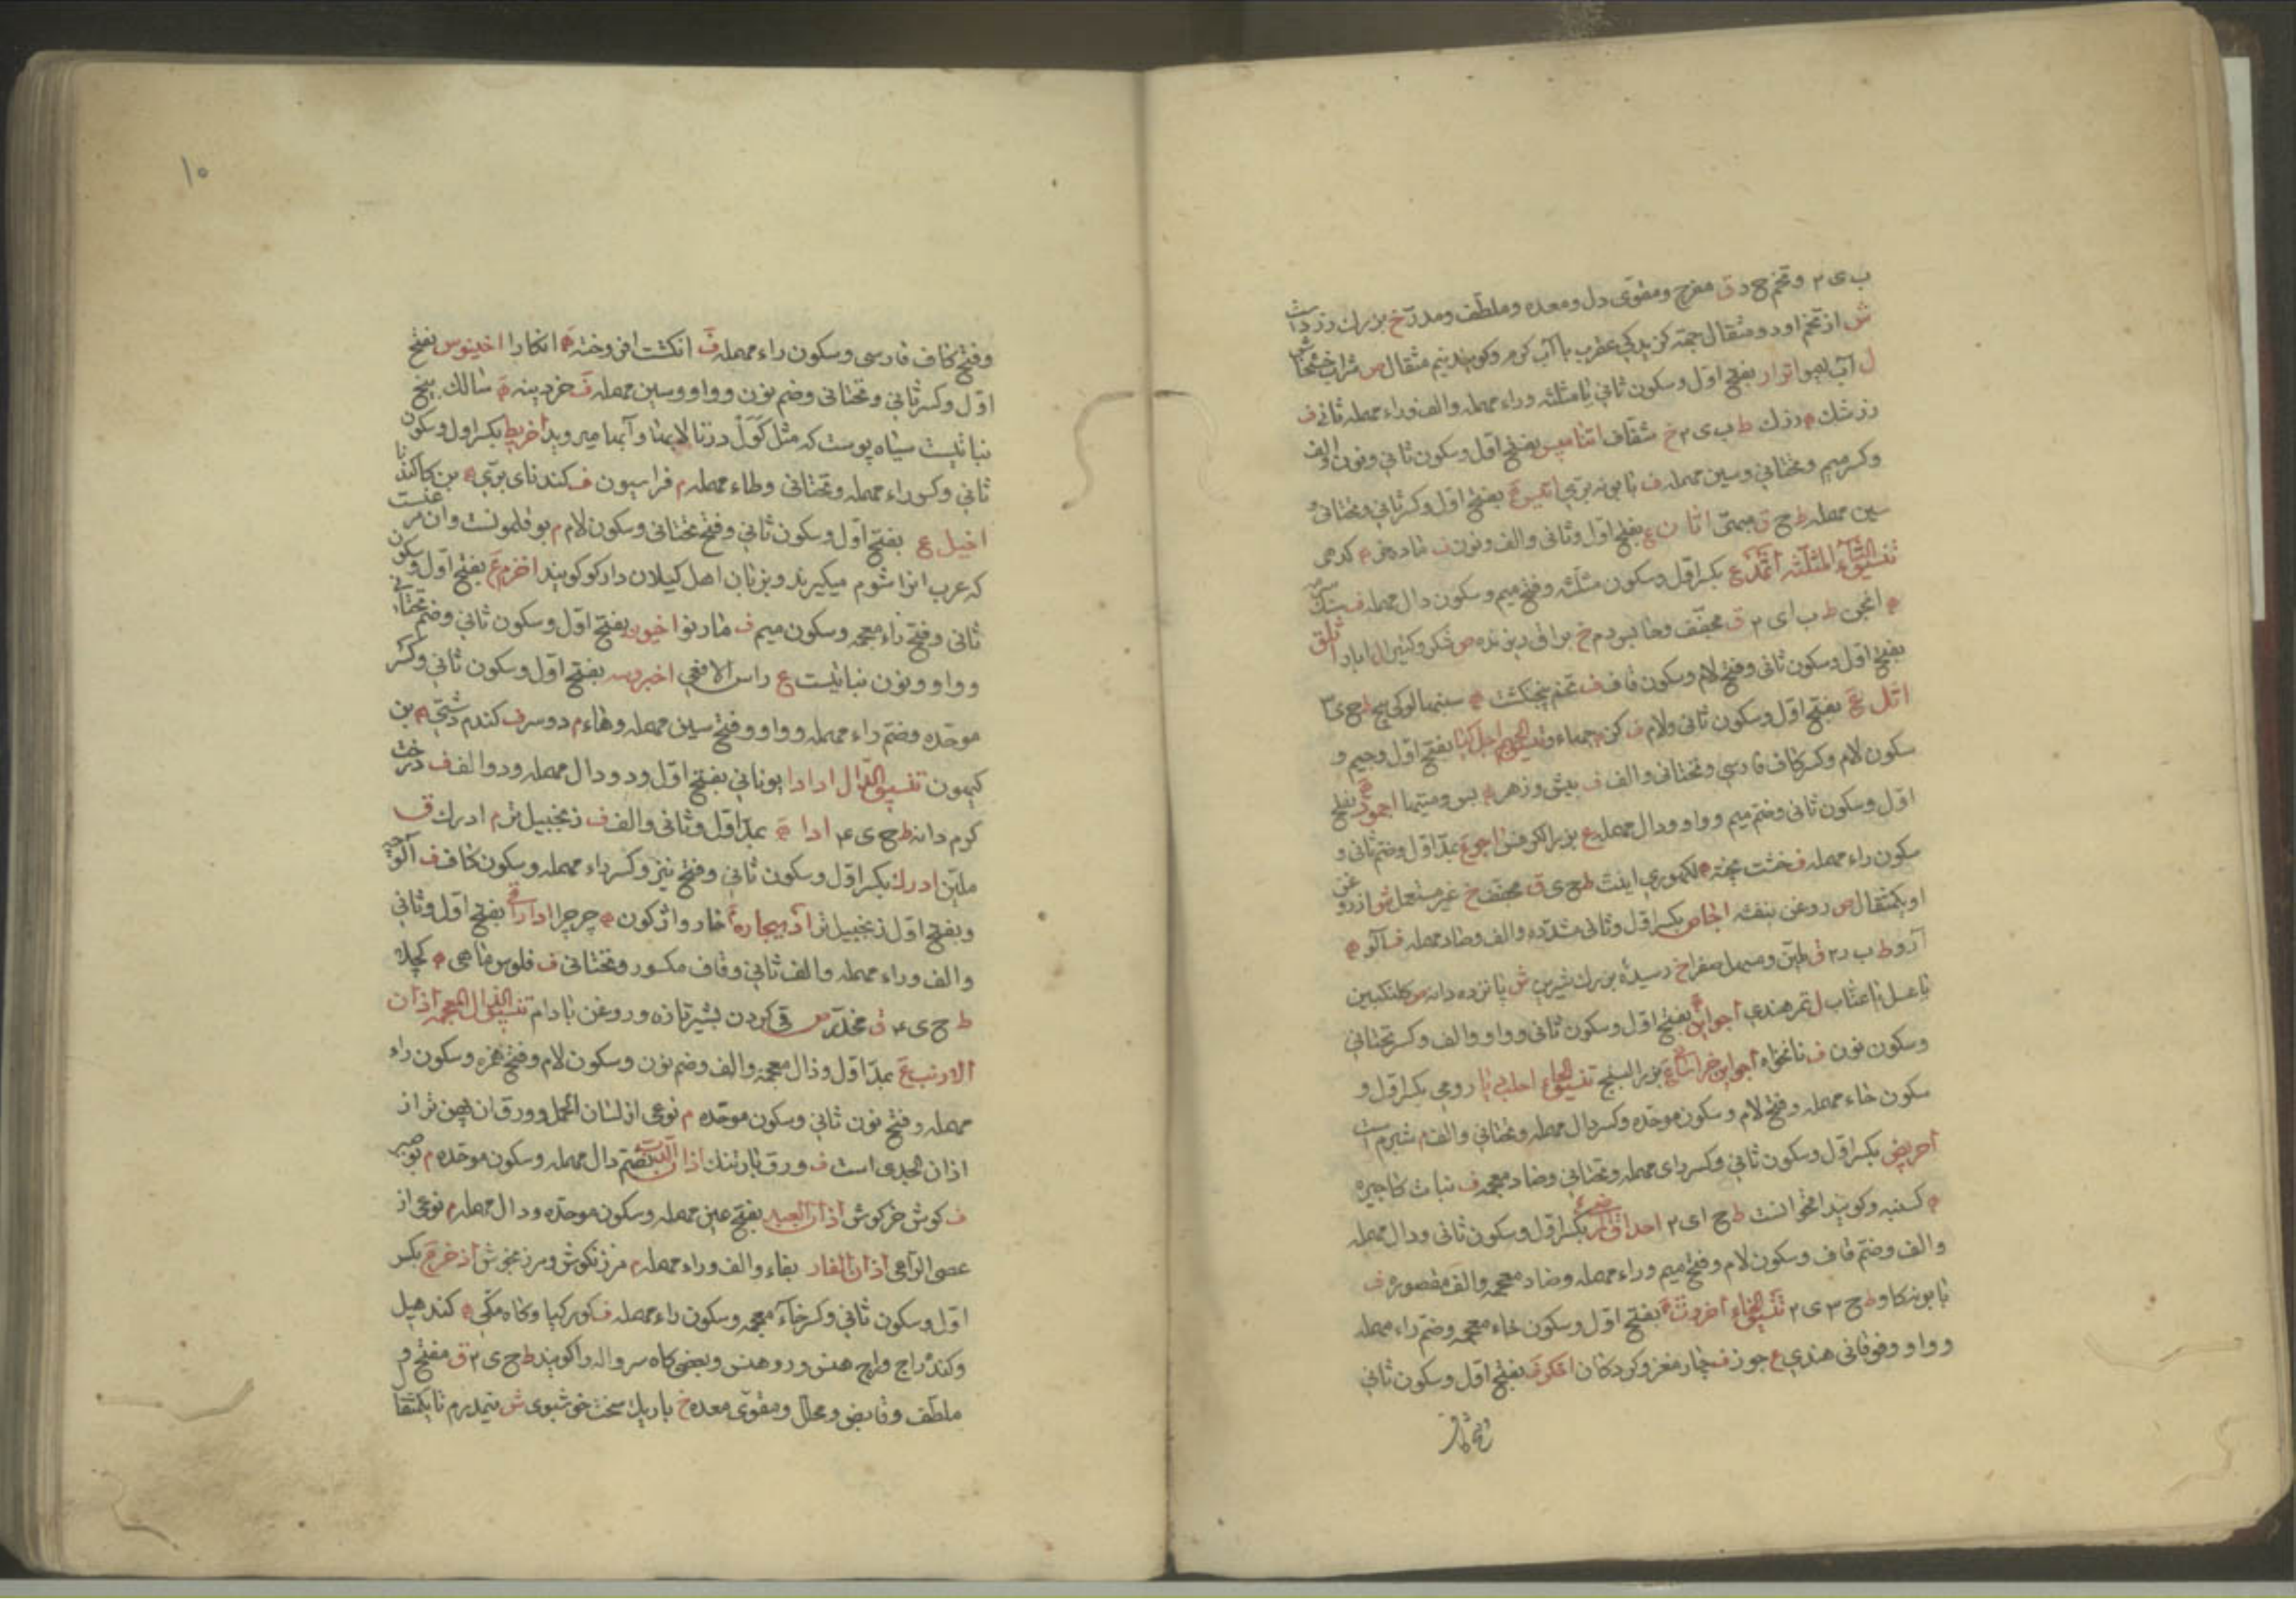 ب ی ۲ و تخم ح د ق مفرح و مقوی دل و معده و ملطف و مدر خ بزرك زرد است
ش از تخم او دو مثقال جهة کزیدکی عقرب با آب کرم و کویند نیم مثقال ص شراب خشخاش
ل آب لیمو اترار بفتح اول و سکون ثانی تا مثلثه و راء مهمله و الف و راء مهمله ثانی ف
زرشك م زرك ط ب ی ۲ خ شفاف اتنامیس بفتح اول و سکون ثانی و نون و الف
و کسر میم و تحتانی و سین مهمله ف بابونه بری بفتح اول و کسر ثانی و تحتانی و
سین مهمله ط ح ق مبهی اتان ع بفتح اول و ثانی و الف و نون ف ماده خر م کدهی
تنسیق الثاء المثلثه اثمد ع بکسر اول و سکون مثلثه و فتح میم و سکون دال مهمله ف سنك سرمه
ه انجن ط ب ای ۲ ق مجفف و حابس دم خ براق ریزنده ص شکر و کتیرا ل ابار اثلق
بفتح اول و سکون ثانی و فتح لام و سکون قاف ف تخم پنجنکشت ه سنبهالو کی بیج ط ح ی ۳
اثل ع بفتح اول و سکون ثانی و لام ف کز م جهاء و تنسیق الجیم اجل کیا بفتح اول و جیم و
سکون لام و کسر کاف فارسی و تحتانی و الف ف بیش و زهر ه بس و میتیها اجمود ه بفتح
اول و سکون ثانی و ضم میم و واو و دال مهمله ع بزر الکرفس اجر ع بمد اول و ضم ثانی و
سکون راء مهمله ف خشت پخته ه لکهوری اینت ط ح ی ق مجفف خ غیر مستعمل ش از روغن
او یکمثقال ص روغن بنفشه اجاص بکسر اول و ثانی مشدده و الف و صاد مهمله ف آلو ه
آرو ط ب ر ۲ ق ملین و مسهل صفرا خ رسیده بزرك شیرین ش پانزده دانه ص کلنکبین
یا عسل یا عناب ل تمر هندی اجواین ه بفتح اول و سکون ثانی و واو و الف و کسر تحتانی
و سکون نون ف نانخواه اجواین خراسانی ع بزر البنج تنسیق الحاء احلبدیا رومی بکسر اول و
سکون حاء مهمله و فتح لام و سکون موحده و کسر دال مهمله و تحتانی و الف م شبرم است
احریض بکسر اول و سکون ثانی و کسر رای مهمله و تحتانی و ضاد معجمه ف نبات کاجیره
ه کسنبه و کویند اقحوانست ط ح ای ۲ احداق المرضی ع بکسر اول و سکون ثانی و دال مهمله
و الف و ضم قاف و سکون لام و فتح میم و راء مهمله و ضاد معجمه و الف مقصوره ف
بابونه کاو ط ح ۳ ی ۲ تنسیق الخاء اخروت ه بفتح اول و سکون خاء معجمه و ضم راء مهمله
و واو و فوقانی هندی ع جوز ف چارمغز و کردکان اخکر ف بفتح اول و سکون ثانی
و فتح کاف
۱۰
و فتح کاف فارسی و سکون راء مهمله ف انکشت افروخته ه انکارا اخینوس بفتح
اول و کسر ثانی و تحتانی و ضم نون و واو و سین مهمله ف خردینه ه سالك بیخ
نباتیست سیاه پوست که مثل کول در تالابها و آبها میروید اخریط بکسر اول و سکون
ثانی و کسر راء مهمله و تحتانی و طاء مهمله م فراسیون ف کندنای بری ه بن کا کندنا
اخیل ع بفتح اول و سکون ثانی و فتح تحتانی و سکون لام م بوقلمونست و آن مرغیست
که عرب انرا شوم میکیرند و بزبان اهل کیلان دارکو کویند اخزم ع بفتح اول و سکون
ثانی و فتح زاء معجمه و سکون میم ف مار نر اخیون بفتح اول و سکون ثانی و ضم تحتانی
و واو و نون نباتیست ع راس الافعی اخبروسه بفتح اول و سکون ثانی و کسر
موحده و ضم راء مهمله و واو و فتح سین مهمله و هاء م دوسر ف کندم دشتی ه بن
کیهون تنسیق الدال ادادا یونانی بفتح اول و دو دال مهمله و دو الف ف درخت
کرم دانه ط ح ی ۴ ادا ه بمد اول و ثانی و الف ف زنجبیل تر م ادرك ق
ملین ادرك بکسر اول و سکون ثانی و فتح نیز و کسر راء مهمله و سکون کاف ف آلوچه
و بفتح اول زنجبیل تر ادبیجاره خار واژکون ه چرچرا اداراقی بفتح اول و ثانی
و الف و راء مهمله و الف ثانی و قاف مکسور و تحتانی ف فلوس ماهی ه کچله
ط ح ی ۴ ق مخدر ص قی کردن بشیر تازه و روغن بادام تنسیق الذال المعجمه اذان
الارنب ع بمد اول و ذال معجمه و الف و ضم نون و سکون لام و فتح همزه و سکون راء
مهمله و فتح نون ثانی و سکون موحده م نوعی از لسان الحمل و ورق ان پهن تر از
اذان الجدی است ف ورق بارتنك اذان الدب بضم دال مهمله و سکون موحده م بوصیر
ف کوش خرکوش اذان العبد بفتح عین مهمله و سکون موحده و دال مهمله م نوعی از
عصی الراعی اذان الفار بفاء و الف و راء مهمله م مرزنکوش و مرزنجوش اذخر ع بکسر
اول و سکون ثانی و کسر خاء معجمه و سکون راء مهمله ف کورکیا و کاه مکی ه کندهیل
و کندراج و اج هنس و رو هنس و بعضی کاه سرواله را کویند ط ح ی ۲ ق مفتح و
ملطف و قابض و محلل و مقوی معده خ باریك سخت خوشبوی ش نیمدرم تا یکمثقال